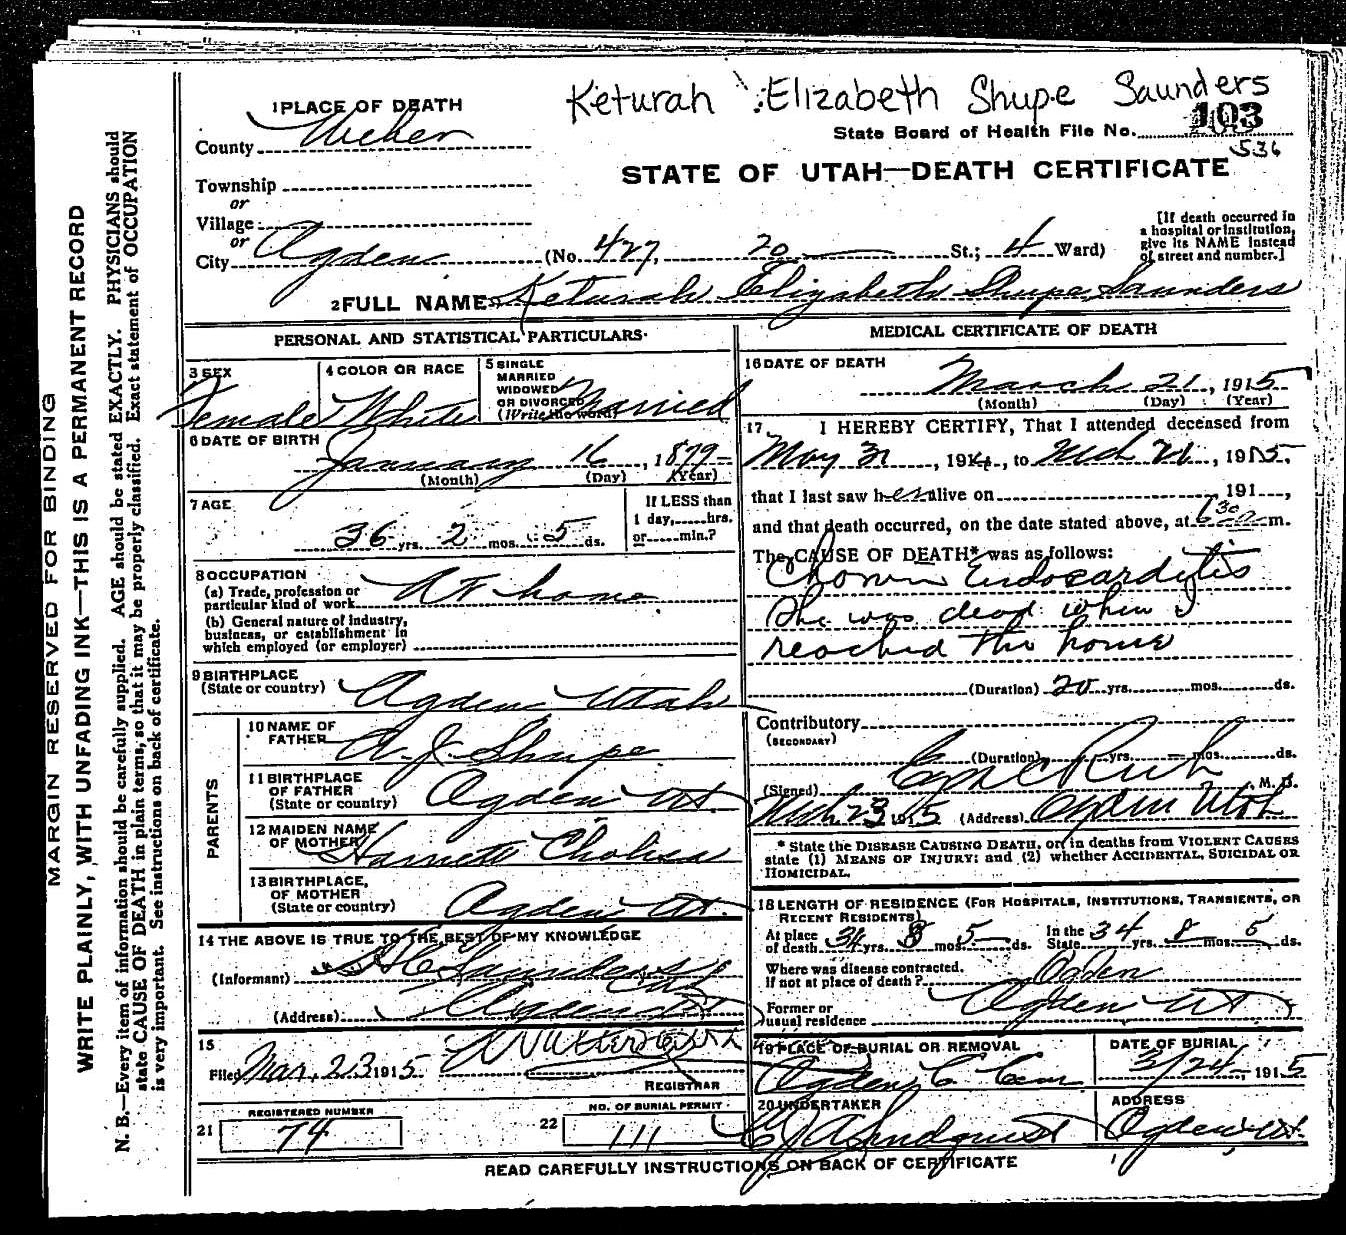 Keturah Elizabeth Shupe Saunders
1 PLACE OF DEATH
County Weber
State Board of Health File No. 103
536
STATE OF UTAH—DEATH CERTIFICATE
Township
or
Village
or
City Ogden (No. 427, 20 St.; 4 Ward)
[If death occurred in
a hospital or institution,
give its NAME instead
of street and number.]
2 FULL NAME Keturah Elizabeth Shupe Saunders
PERSONAL AND STATISTICAL PARTICULARS
3 SEX
Female
4 COLOR OR RACE
White
5 SINGLE
MARRIED
WIDOWED
OR DIVORCED
(Write the word)
Married
6 DATE OF BIRTH
January 16, 1879
(Month) (Day) (Year)
7 AGE
36 yrs. 2 mos. 5 ds.
If LESS than
1 day, hrs.
or min.?
8 OCCUPATION
(a) Trade, profession or
particular kind of work At home
(b) General nature of industry,
business, or establishment in
which employed (or employer)
9 BIRTHPLACE
(State or country) Ogden Utah
PARENTS
10 NAME OF
FATHER A. J. Shupe
11 BIRTHPLACE
OF FATHER
(State or country) Ogden Ut
12 MAIDEN NAME
OF MOTHER Harriett
13 BIRTHPLACE,
OF MOTHER
(State or country) Ogden Ut.
14 THE ABOVE IS TRUE TO THE BEST OF MY KNOWLEDGE
(Informant) Saunders
(Address) Ogden Ut
15
Filed Mar. 23 1915
REGISTRAR
REGISTERED NUMBER
21 74
NO. OF BURIAL PERMIT
22 111
MEDICAL CERTIFICATE OF DEATH
16 DATE OF DEATH
March 21, 1915
(Month) (Day) (Year)
17 I HEREBY CERTIFY, That I attended deceased from
May 31, 1914, to Mch 21, 1915,
that I last saw her alive on 191 ,
and that death occurred, on the date stated above, at 6 30 a m.
The CAUSE OF DEATH* was as follows:
Chronic Endocarditis
She was dead when I
reached the home
(Duration) 20 yrs. mos. ds.
Contributory
(SECONDARY)
(Duration) yrs. mos. ds.
(Signed) Rich, M. D.
Mch 23 1915 (Address) Ogden Utah
* State the DISEASE CAUSING DEATH, or, in deaths from VIOLENT CAUSES
state (1) MEANS OF INJURY; and (2) whether ACCIDENTAL, SUICIDAL OR
HOMICIDAL.
18 LENGTH OF RESIDENCE (FOR HOSPITALS, INSTITUTIONS, TRANSIENTS, OR
RECENT RESIDENTS)
At place
of death 34 yrs. 8 mos. 5 ds.
In the
State 34 yrs. 8 mos. 5 ds.
Where was disease contracted,
If not at place of death? Ogden
Former or
usual residence Ogden Ut
19 PLACE OF BURIAL OR REMOVAL
Ogden C. Cem
DATE OF BURIAL
3/24, 1915
20 UNDERTAKER
ADDRESS
Ogden Ut.
READ CAREFULLY INSTRUCTIONS ON BACK OF CERTIFICATE
MARGIN RESERVED FOR BINDING
WRITE PLAINLY, WITH UNFADING INK—THIS IS A PERMANENT RECORD
N. B.—Every item of information should be carefully supplied. AGE should be stated EXACTLY. PHYSICIANS should
state CAUSE OF DEATH in plain terms, so that it may be properly classified. Exact statement of OCCUPATION
is very important. See instructions on back of certificate.